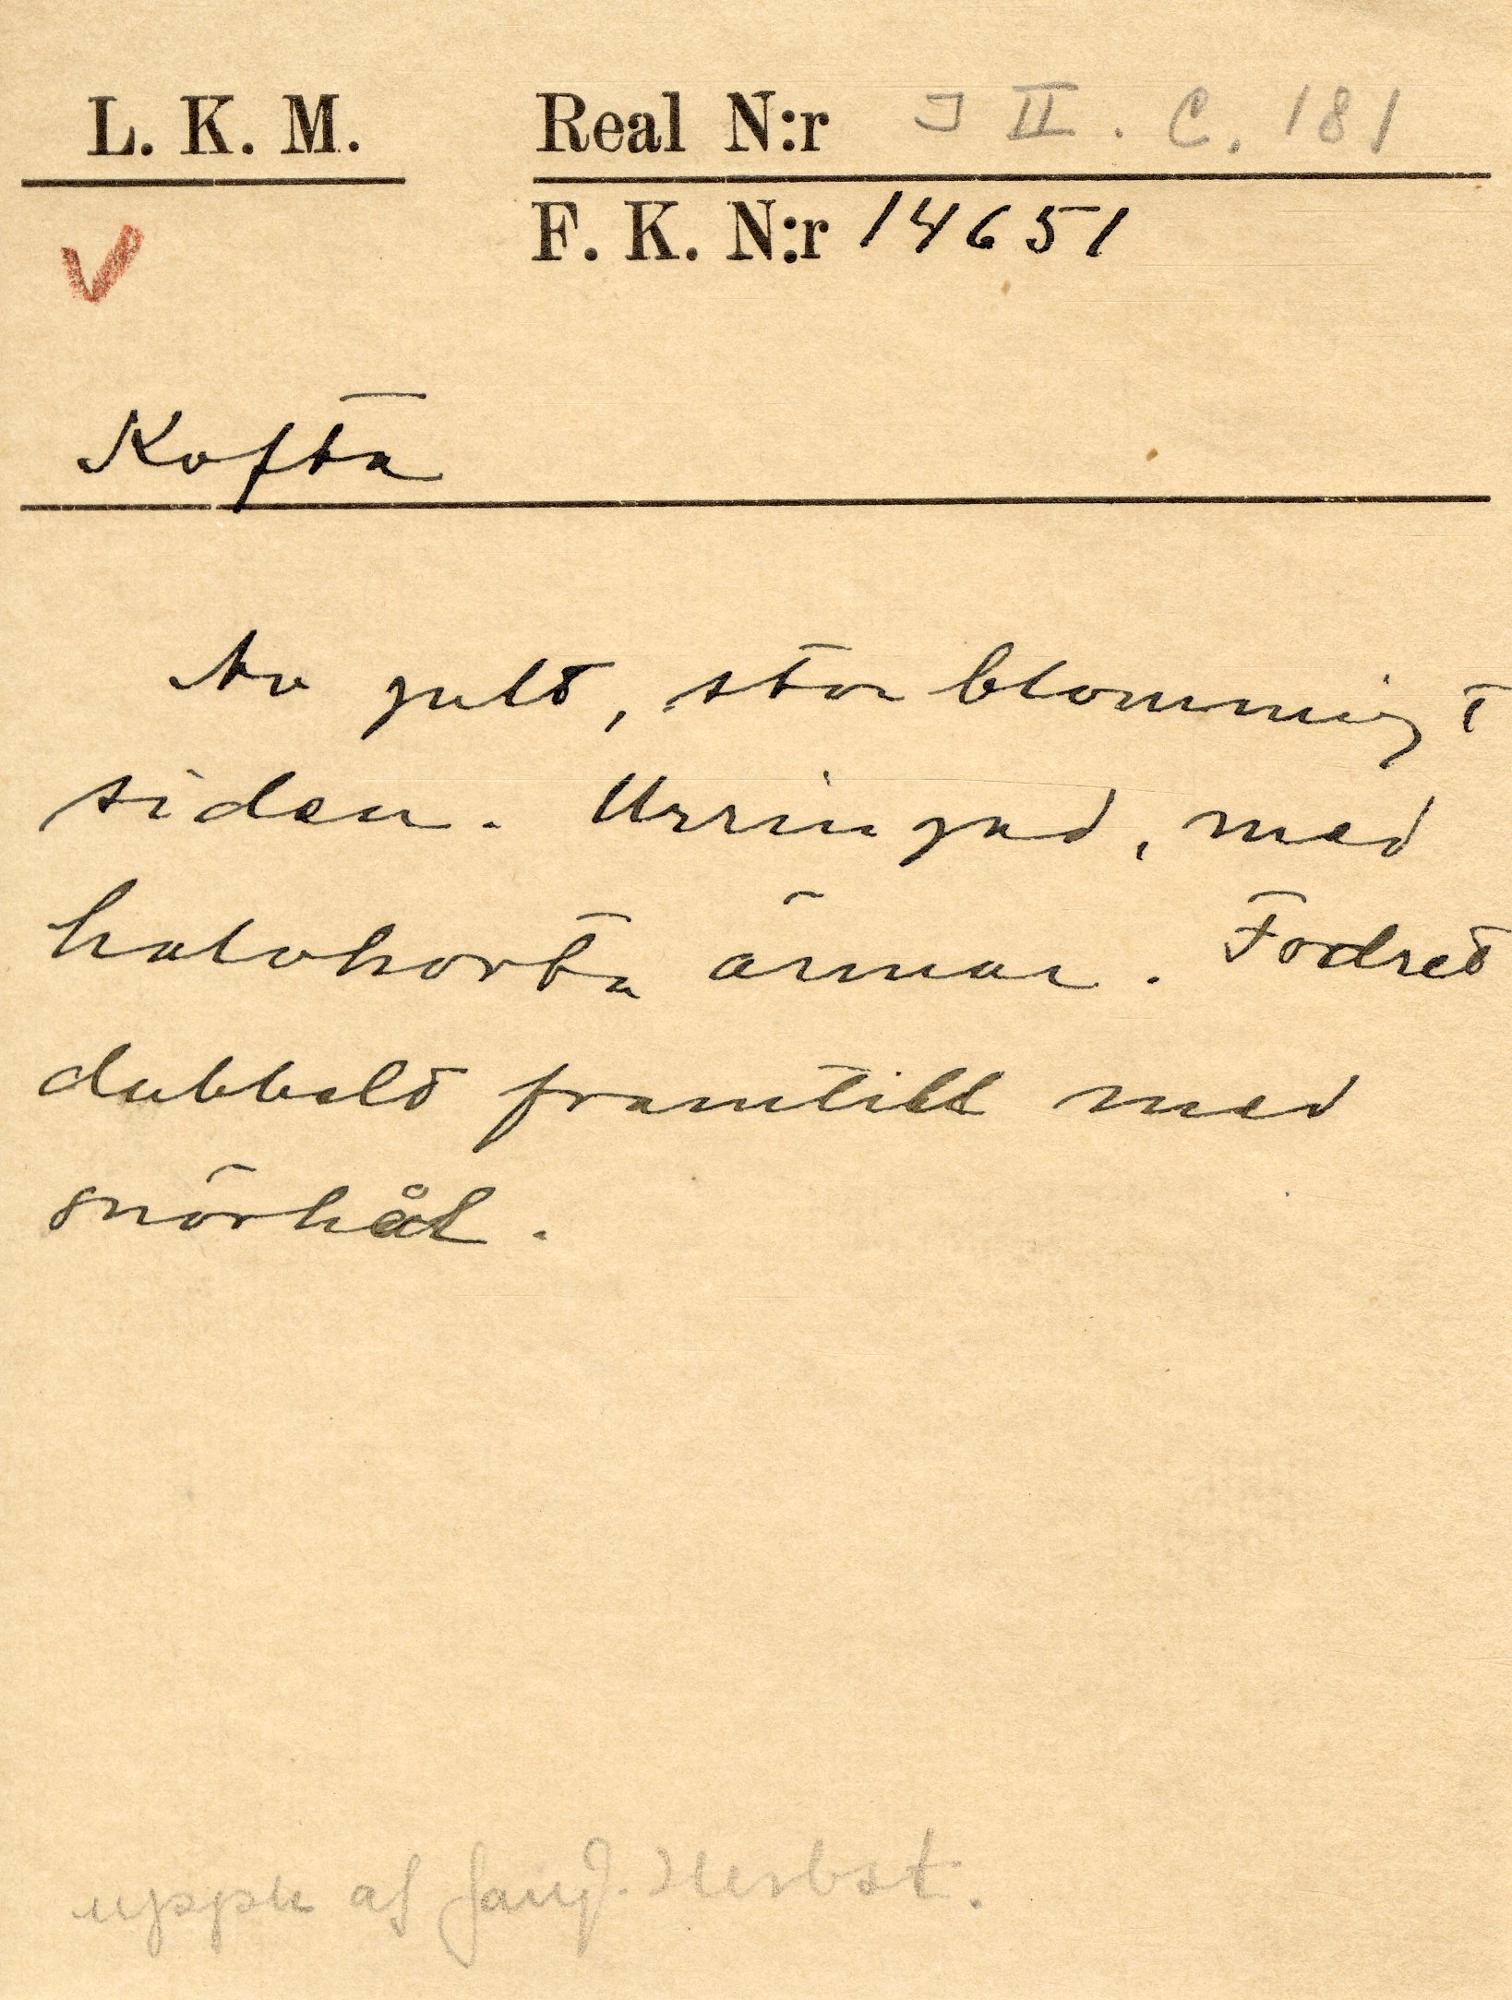 L. K. M. Real N:r I II. C. 181
F. K. N:r 14651
Kofta
Av gult, storblommigt
siden. Urringad, med
halvkorta ärmar. Fodret
dubbelt framtill med
snörhål.
uppk af Herbst.